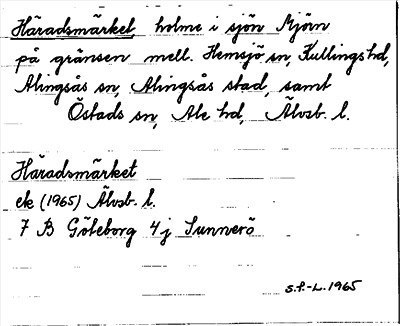 Häradsmärket holme i sjön Mjörn
på gränsen mell. Hemsjö sn, Kullings hd,
Alingsås sn, Alingsås stad, samt
Östads sn, Ale hd, Älvsb. l.
Häradsmärket
ek (1965) Älvsb. l.
7 B Göteborg 4 j Sunnerö
S.f.-L. 1965